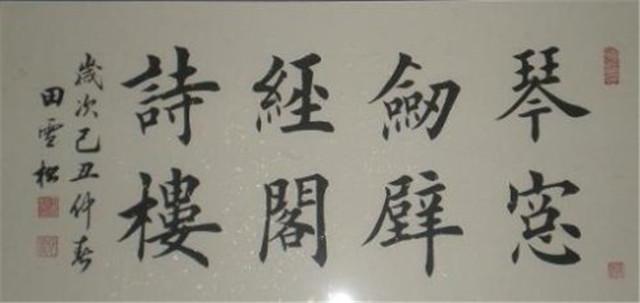 琴窓
劒壁
經閣
詩樓
歲次己丑仲春
田雪松